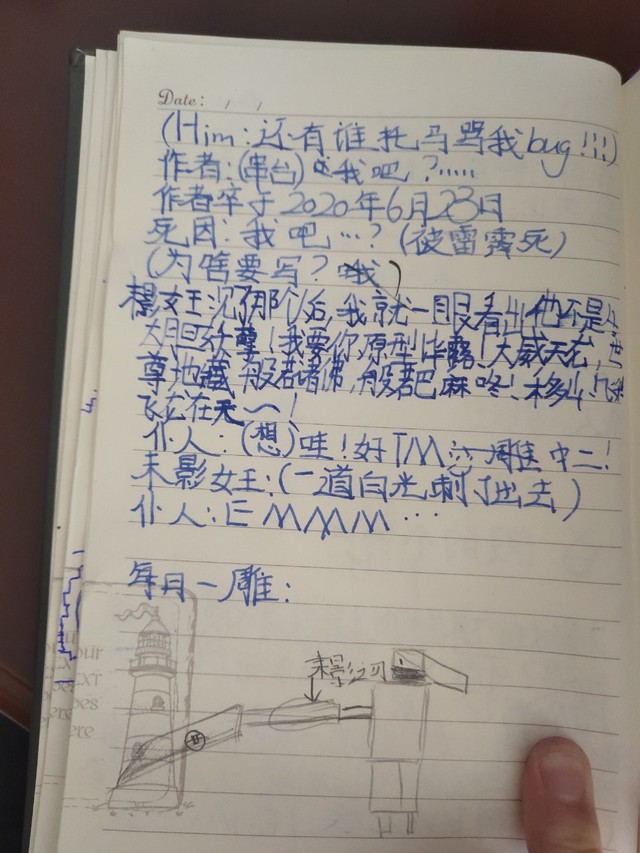 Date: / /
(Him:还有谁托马骂我bug!!!)
作者:(串台)是我吧?.....
作者卒于2020年6月23日
死因:我吧…?(被雷霹死)
(为啥要写?哦)
女王沉了那个后,我就一眼看出他不是
大胆妖孽!我要你原型毕露!大威天龙,世
尊地藏 般若诸佛,般若巴麻哄!
飞龙在天~!
仆人:(想)哇!好TM 雕 中二!
末影女王:(一道白光刺了出去)
仆人:EMMM…
每月一雕:
末影之刃